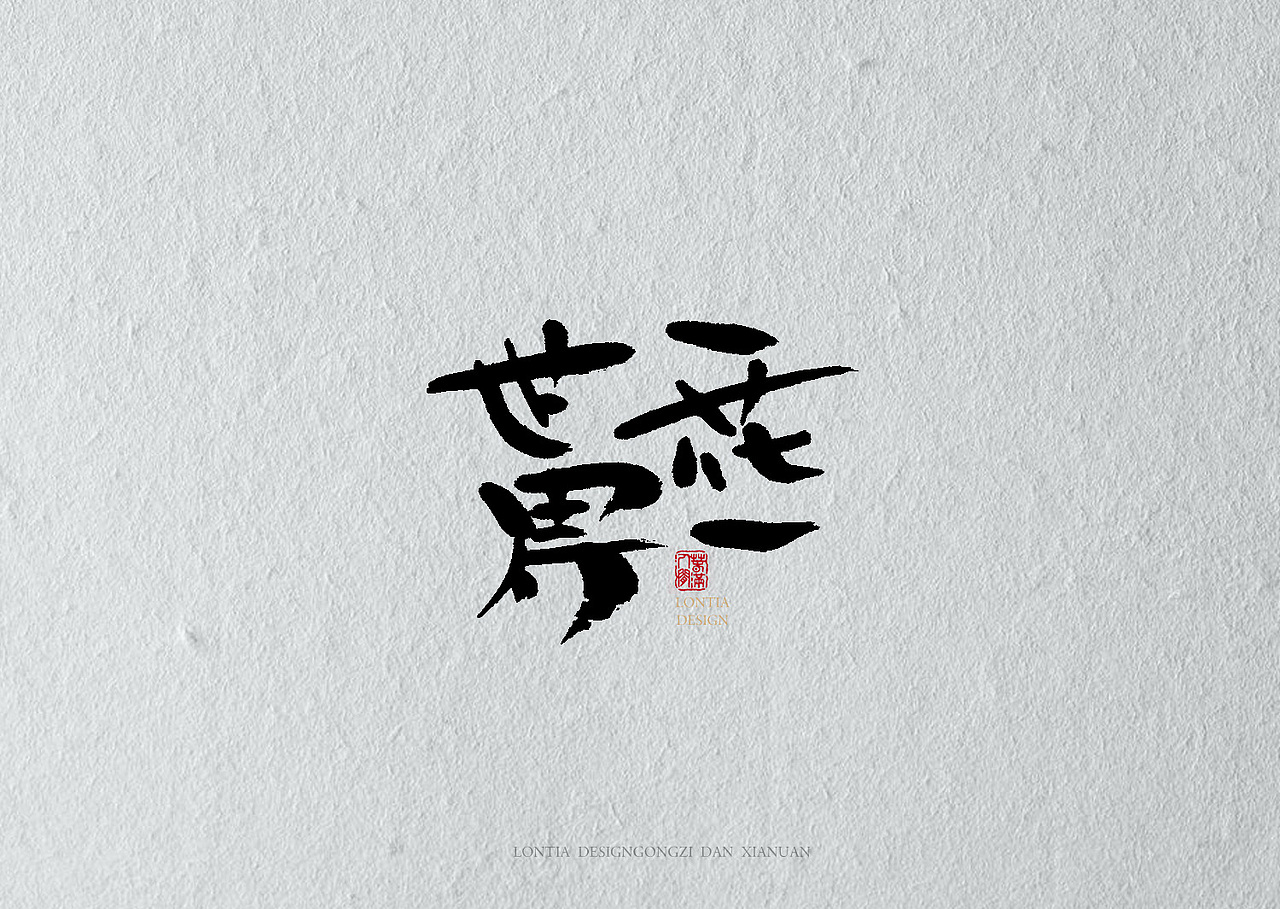 一花一
世界
LONTIA
DESIGN
LONTIA DESIGNGONGZI DAN XIANUAN